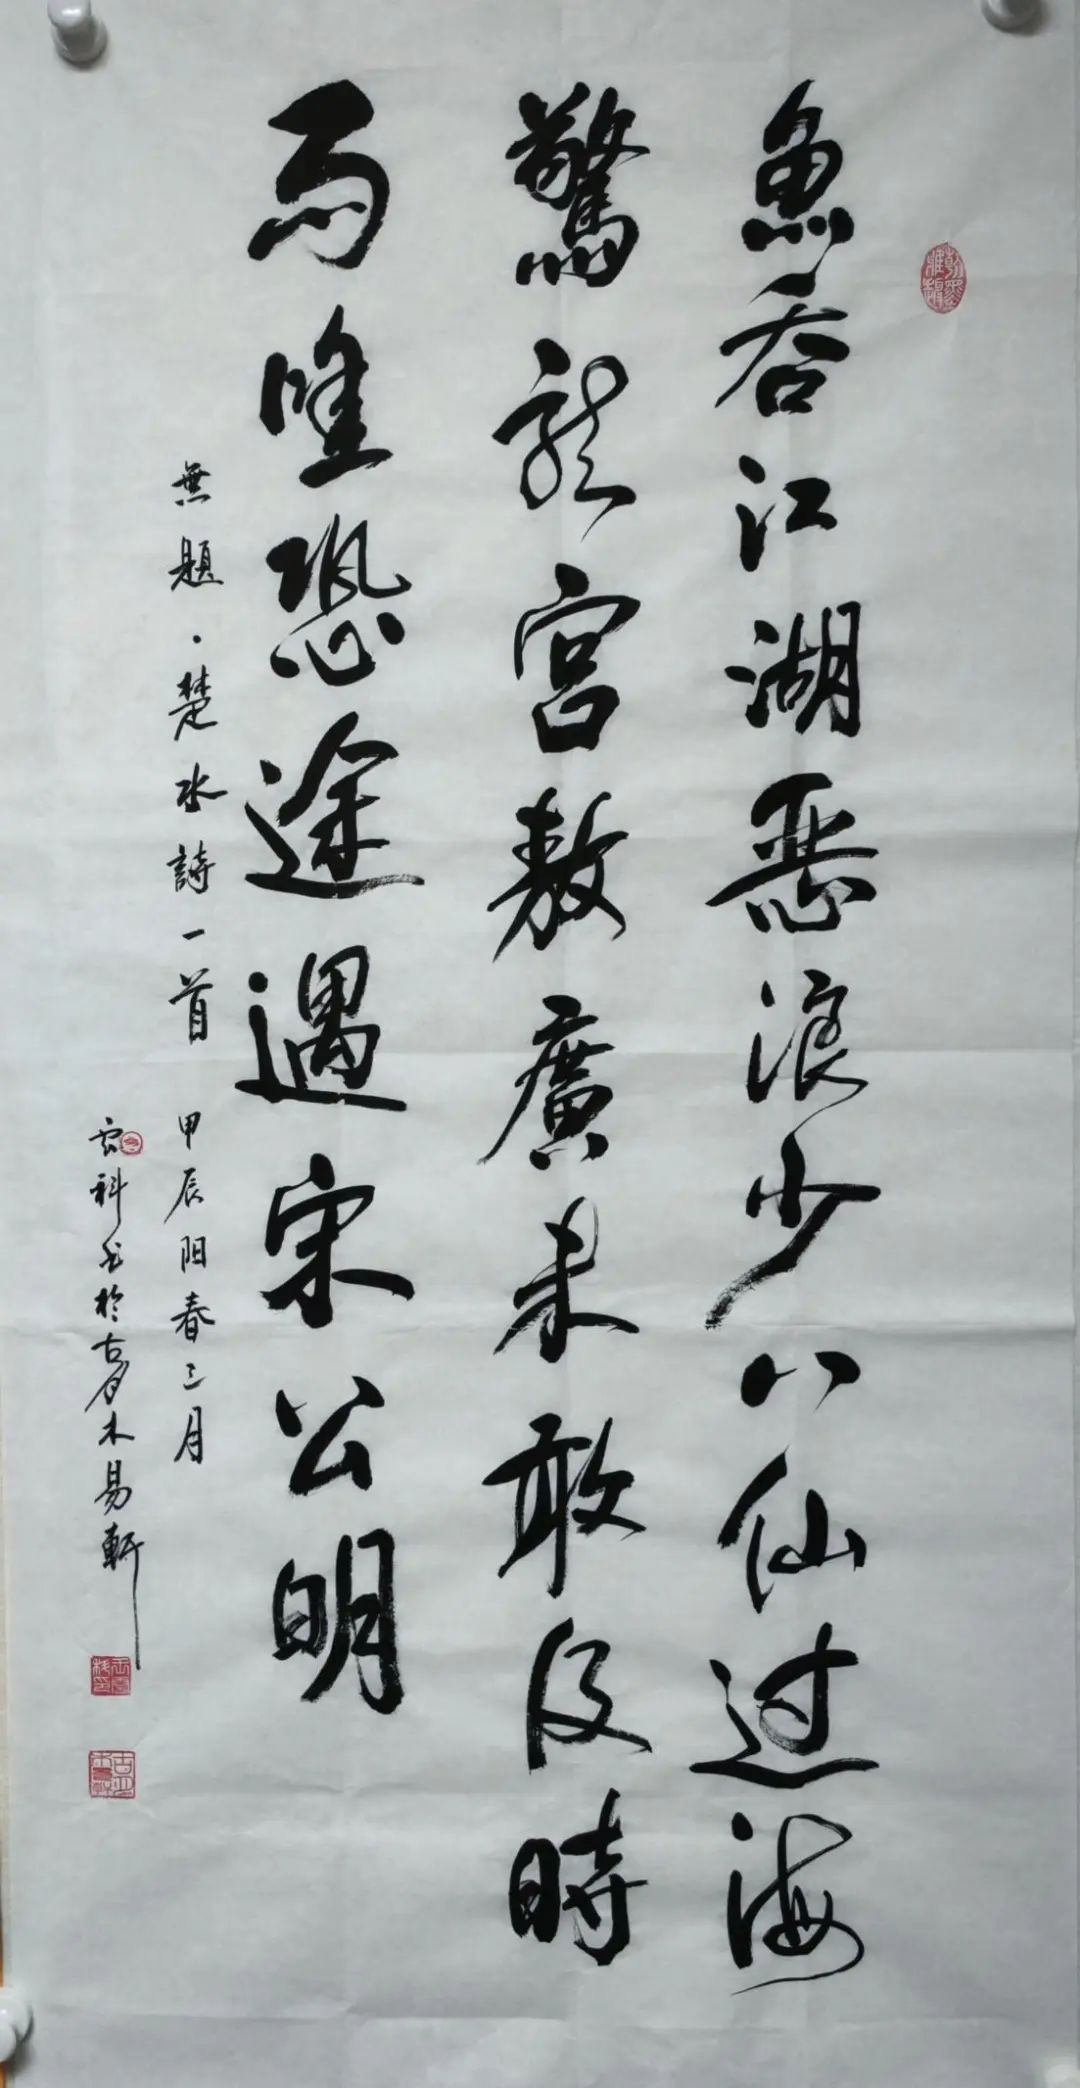 魚吞江湖惡浪少八仙过海
驚龙宫敖廣未敢及時
雨唯恐途遇宋公明
無題·楚水詩一首 甲辰阳春三月
雲科书於古月木易軒